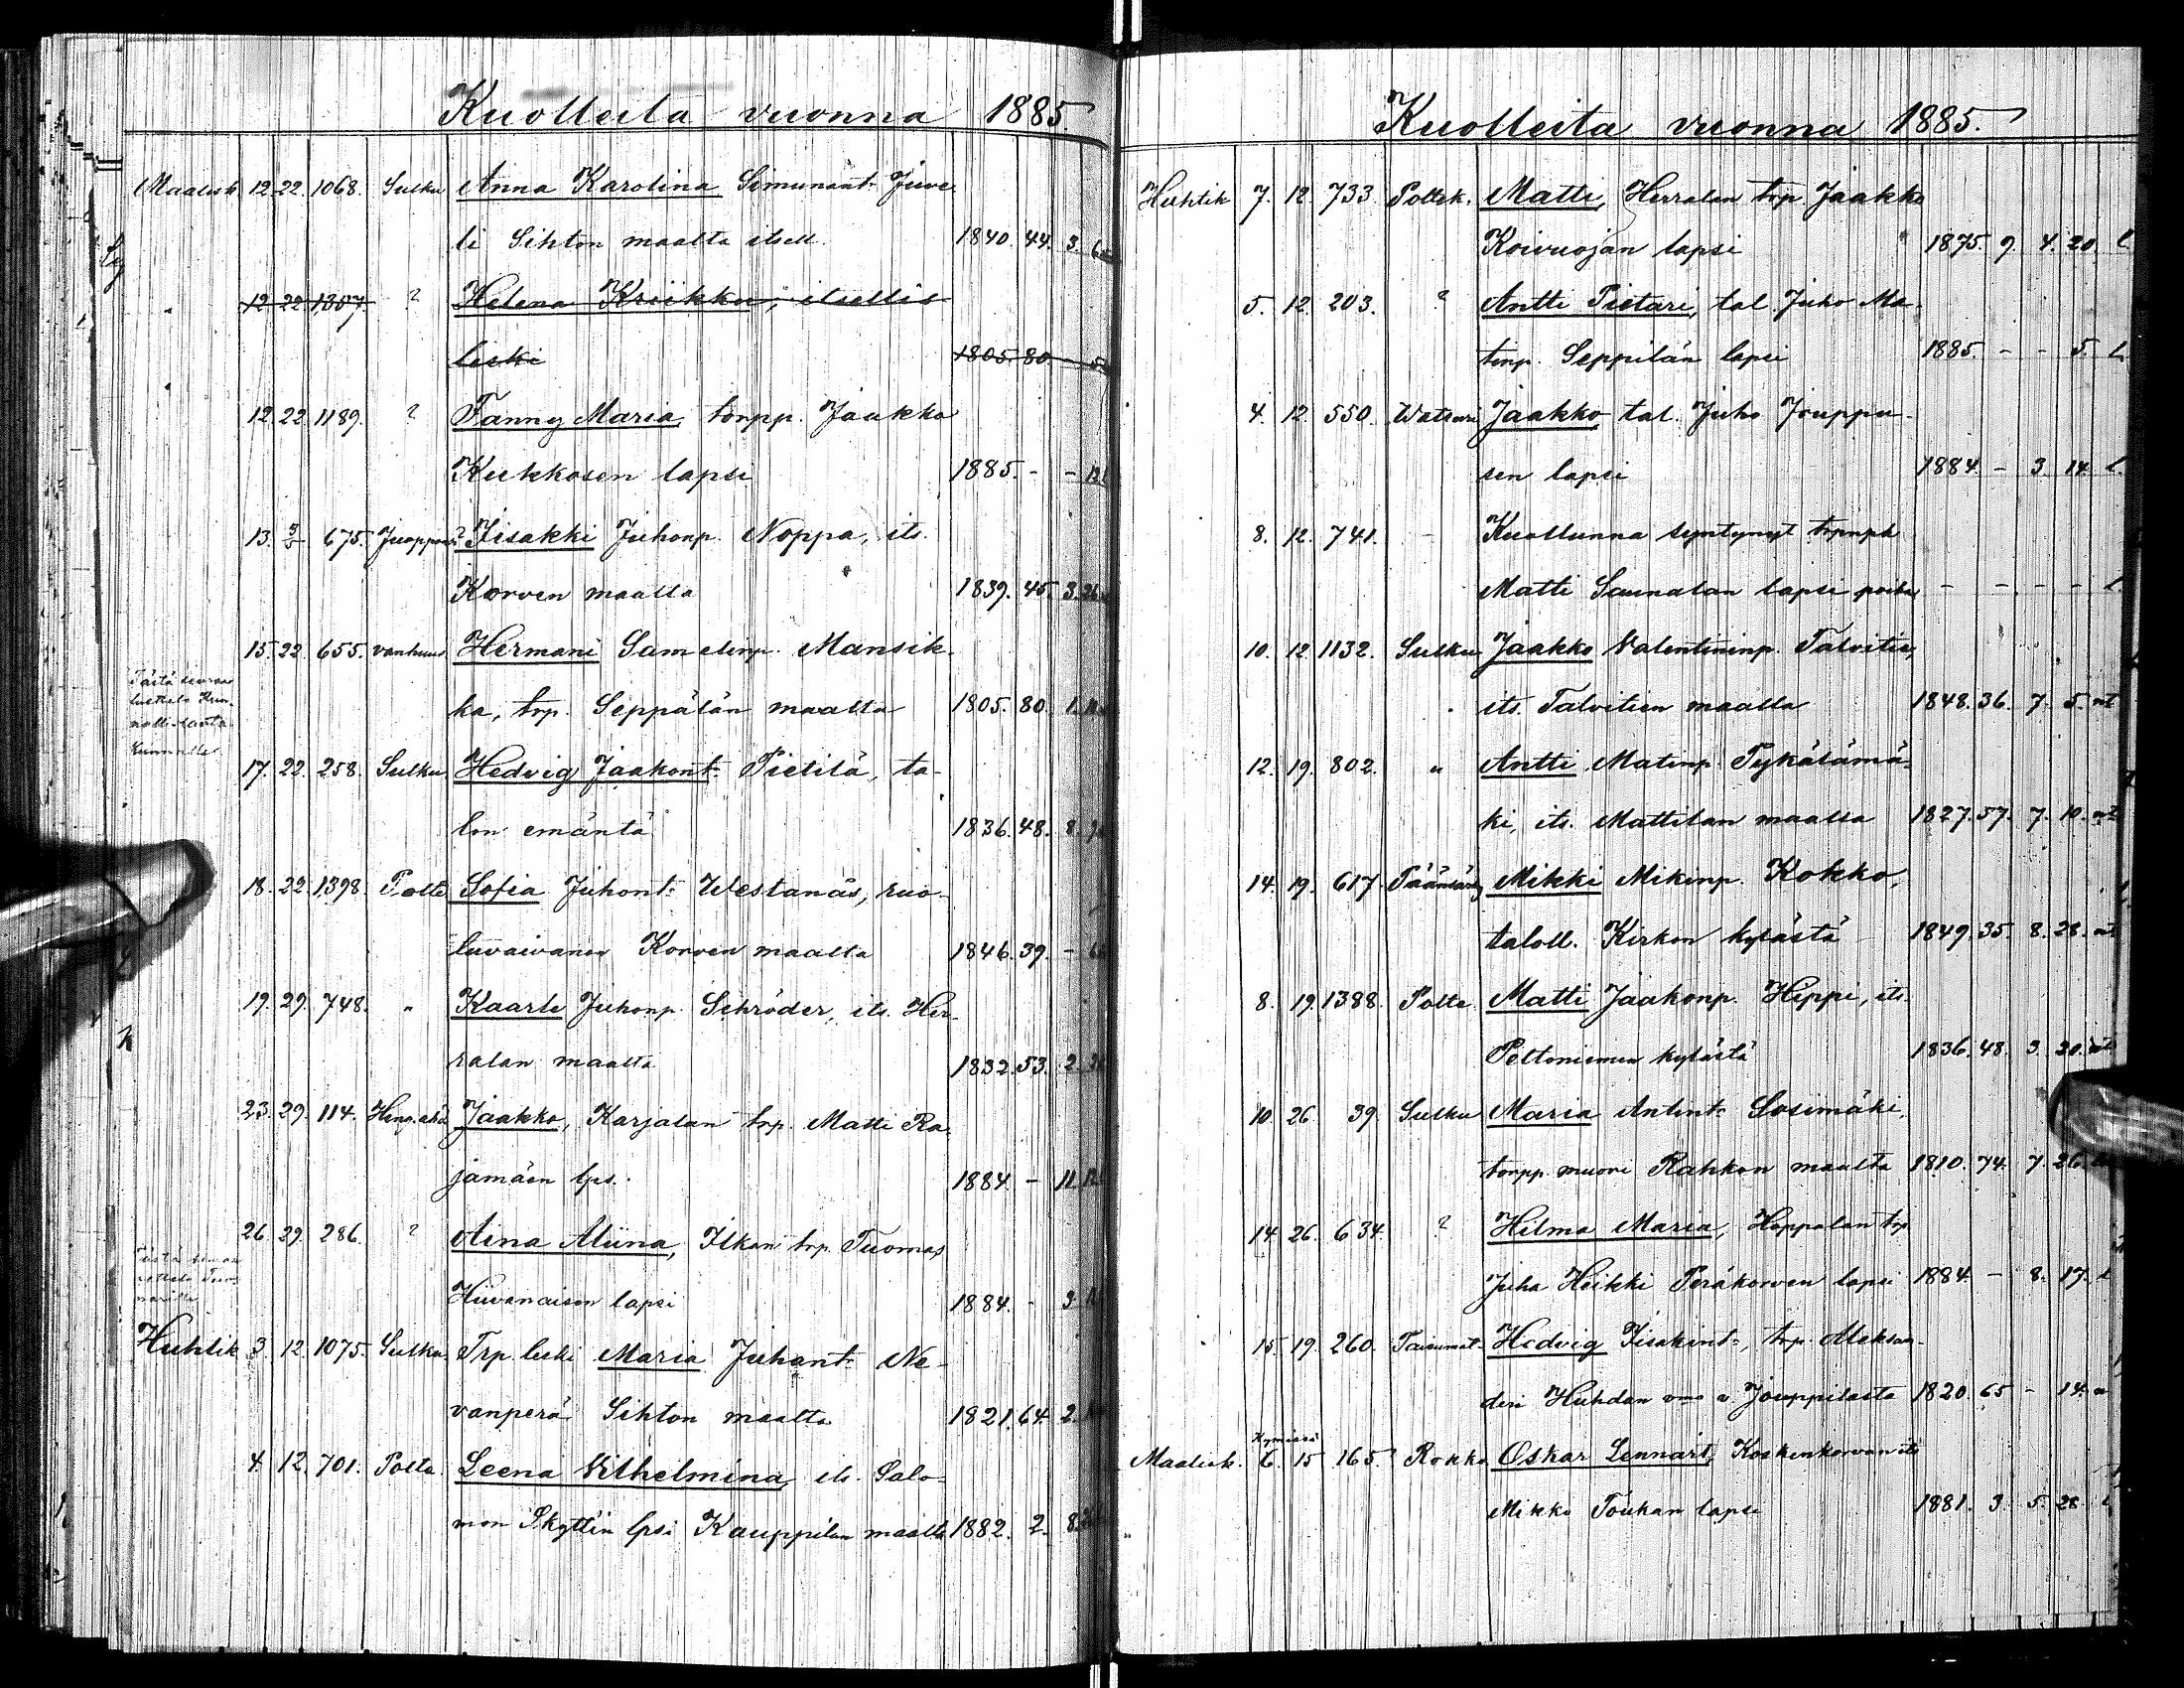 Kuolleita vuonna 1885.
Maalisk. 12. 22. 1068. Sulku Anna Karolina Simunant. Juve
li Sihton maalta itsell. 1840. 44. 3.
" 12 22 1307. ? Helena Kriikku, itsellis
leski 1805. 80. 5
12. 22. 1189. ? Fanny Maria, torpp. Jaakko
Kukkosen lapsi 1885. - - 12
13. 675. Iisakki Juhonp. Noppa, its.
Korven maalta 1839. 45. 3. 26
15. 22. 655. vanhuus Hermani Samelinp. Mansik-
ka, trp. Seppälän maalta 1805. 80. 1.
Tästä seuraa
luettelo Kun-
nallislauta-
kunnalle
17. 22. 258. Sulku Hedvig Jaakont. Pietilä, ta-
lon emäntä 1836. 48. 8.
18. 22. 1398. Polte Sofia Juhont. Westanäs, ruo-
tuvaivanen Korven maalta 1846. 39. -
19. 29. 748. " Kaarle Juhonp. Schröder, its. Her-
ralan maalta 1832. 53. 2.
23. 29. 114. Hing.ahd Jaakko, Karjalan trp. Matti Ra-
jamäen lps. 1884. - 11.
26. 29. 286. ? Aina Miina, Ilkan trp. Tuomas
Hiivanaisen lapsi 1884. - 3.
Tästä seuraa
luettelo
Huhtik 3. 12. 1075. Sulku Trp. leski Maria Juhant. Ne-
vanperä Sihton maalta 1821. 64. 2.
4. 12. 701. Polte. Leena Vilhelmina, its. Salo-
mon Skyttin lpsi Kauppilan maalta 1882. 2. 8.
Kuolleita vuonna 1885.
Huhtik 7. 12. 733. Poltek. Matti, Herralan trp. Jaakko
Koivuojan lapsi 1875. 9. 4. 20. l.
5. 12. 203. ? Antti Pietari, tal. Juho Ma-
tinp. Seppilän lapsi 1885. - - 5. l.
4. 12. 550. Watsur. Jaakko, tal. Juho Jouppu-
sen lapsi 1884. - 3. 14. l.
8. 12. 741. - Kuollunna syntynyt
Matti Saunalan lapsi poika - - - - l.
10. 12. 1132. Sulku Jaakko Valentininp. Talvitie,
its. Talvitien maalta 1848. 36. 7. 5. nt
12. 19. 802. " Antti Matinp. Pykälämä-
ki, its. Mattilan maalta 1827. 57. 7. 10. nt
14. 19. 617. Päänsärky Mikki Mikinp. Kokko,
taloll. Kirkon kylästä 1849. 35. 8. 28. nt
8. 19. 1388. Polte Matti Jaakonp. Hippi, its.
Peltoniemen kylästä 1836. 48. 3. 20. nt
10. 26. 39. Sulku Maria Antint. Sosimäki,
torpp. muori Rahkon maalta 1810. 74. 7. 26.
14. 26. 634. ? Hilma Maria, Hoppalan trp.
Juha Heikki Peräkorven lapsi 1884. - 8. 17. l
15. 19. 260. Hedvig Iisakint., trp. Aleksan-
deri Huhdan v. Jouppilasta 1820. 65 - 14.
Kymissä
Maalisk. 6. 15 165. Rokko Oskar Lennart, Koskenkorvan its
Mikko Töukan lapsi 1881. 3. 5. 28. l